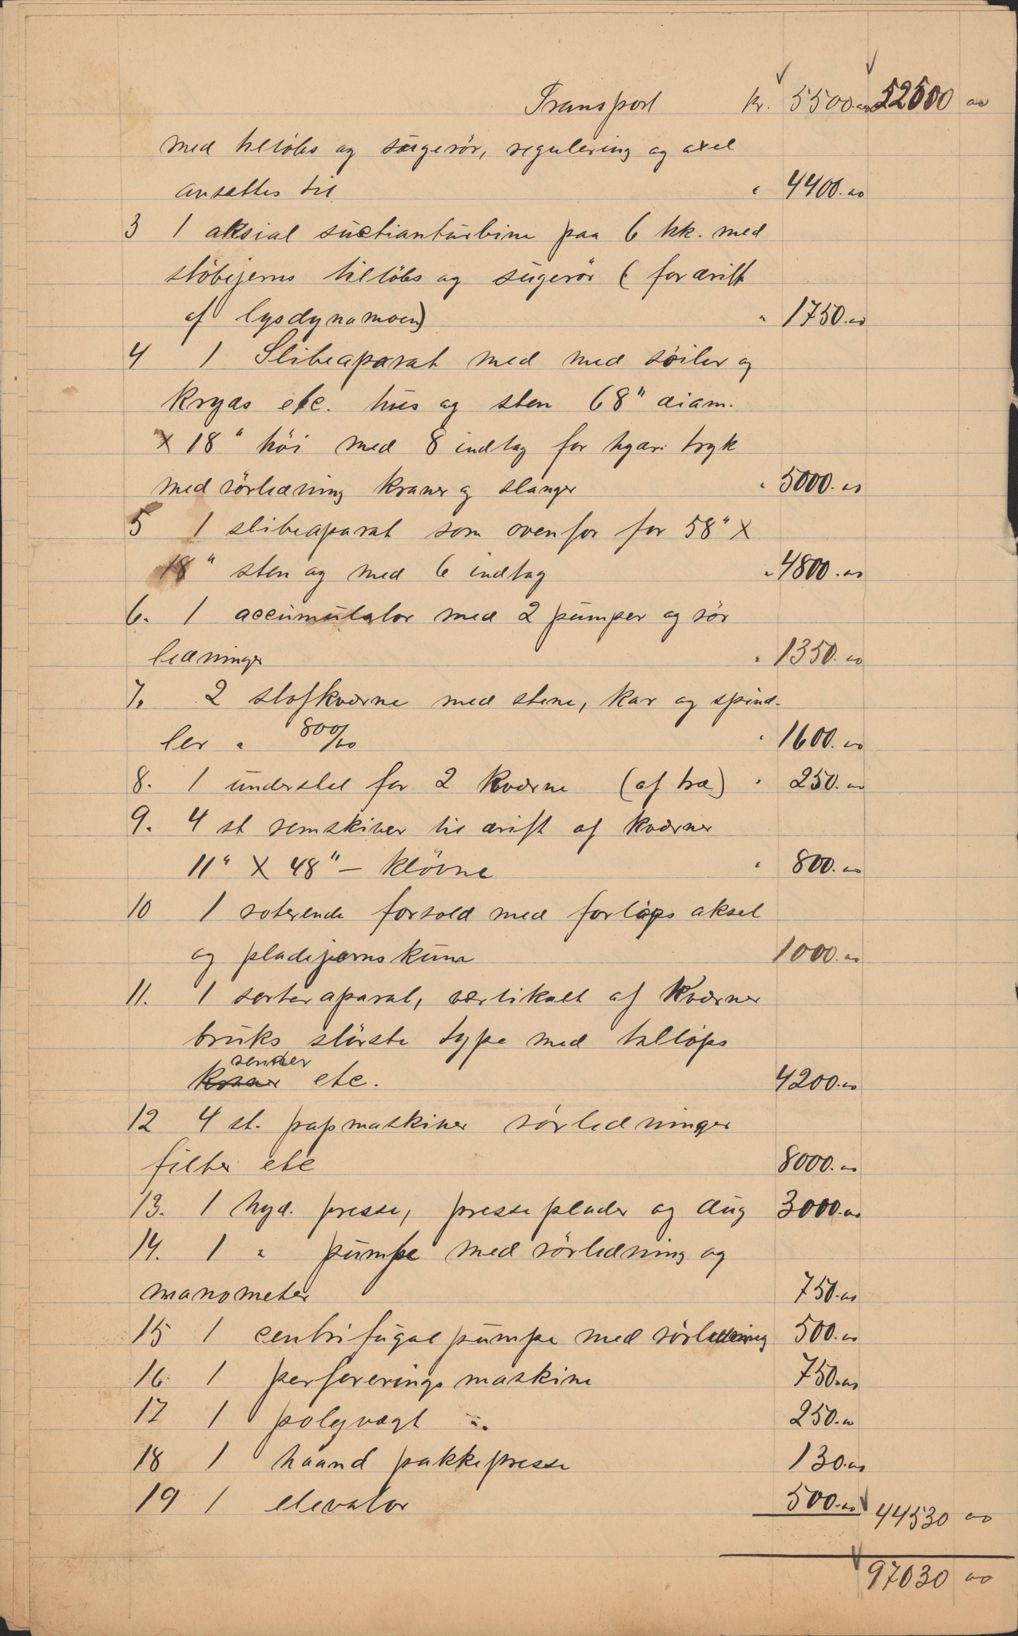 Transport kr. 5500.00 52500 00
med tilløbs og sugerör, regulering og axel
ansættes til " 4400.00
3 1 aksial suctionturbine paa 6 hk. med
stöbejerns tilløbs og sugerör (for drift
af lysdynamoen) " 1750.00
4 1 Slibeapparat med med söiler og
krydas etc. hus og sten 68" diam.
X 18" höi med 8 indtag for hydr. tryk
med rörledning kraner og slanger " 5000.00
5 1 slibeaparat som ovenfor for 58" X
18" sten og med 6 indtag " 4800.00
6. 1 accumulator med 2 pumper og rör
ledninger " 1350.00
7. 2 stofkværne med stene, kar og spind-
ler " 800/00 " 1600.00
8. 1 understel for 2 kværne (af træ) " 250.00
9. 4 st remskiver til drift af kværner
11" X 48" – klövne " 800.00
10 1 roterende forsold med forlags aksel
og pladejernskum 1000.00
11. 1 sorteraparat, vertikalt af Kværner
bruks störste type med tilløps
render
etc. 4200.00
12 4 st. papmaskiner rörledninger
filter etc 8000.00
13. 1 hyd. presse, presseplader og dug 3000.00
14. 1 " pumpe med rörledning og
manometer 750.00
15 1 centrifugal pumpe med rörledning 500.00
16 1 perforerings maskine 750.00
17 1 polyvægt 250.00
18 1 haand pakkepresse 130.00
19 1 elevator 500.00 44530 00
97030 00